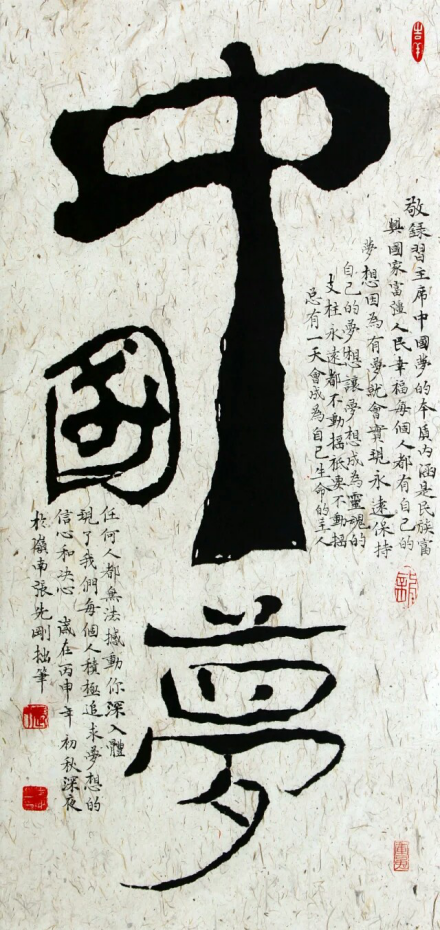 中國夢
敬錄習主席中國夢的本質內涵是民族富
興國家富强人民幸福每個人都有自己的
夢想因為有夢就會實現永遠保持
自己的夢想讓夢想成為靈魂的
支柱永遠都不動摇祇要不動摇
总有一天會成為自己生命的主人
任何人都無法撼動你深入體
現了我們每個人積極追求夢想的
信心和决心 歲在丙申年初秋深夜
於嶺南張先剛拙筆